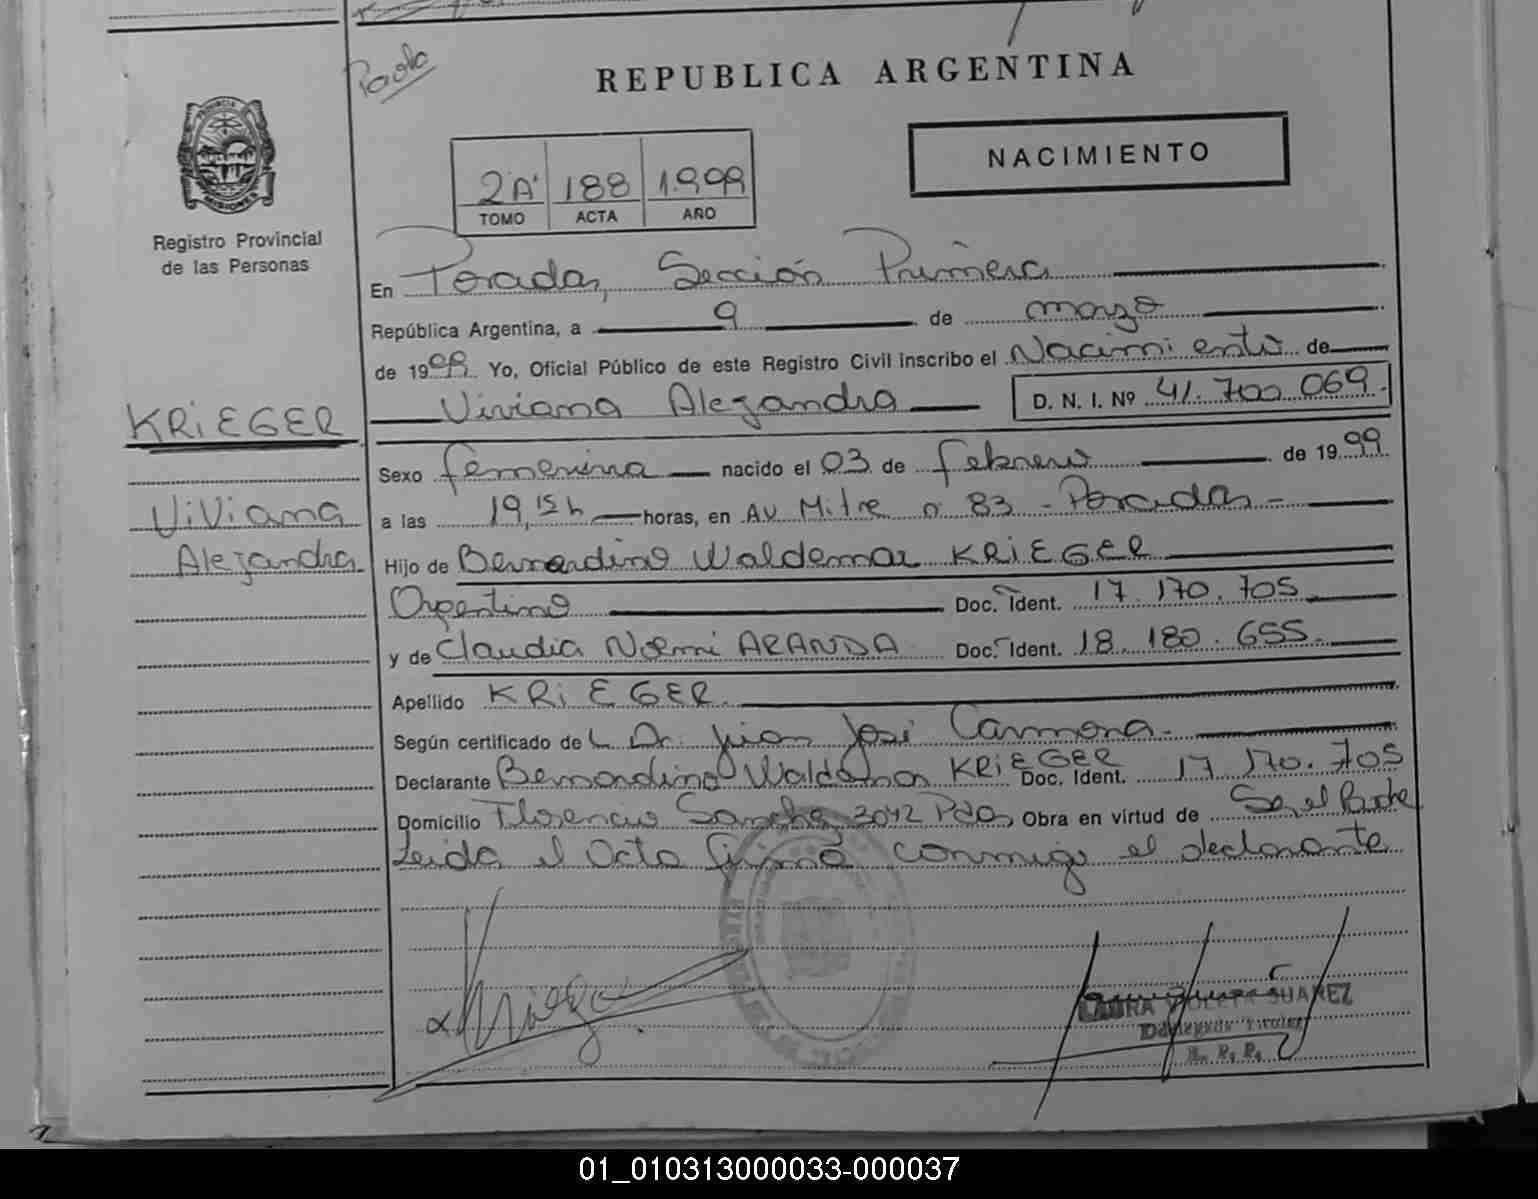 Paola
REPUBLICA ARGENTINA
NACIMIENTO
2'A' 188 1.999
TOMO ACTA AÑO
Registro Provincial
de las Personas
En Posadas, Sección Primera
República Argentina, a 9 de marzo
de 1999 Yo, Oficial Público de este Registro Civil inscribo el Nacimiento de
Viviana Alejandra D. N. I. Nº 41.700.069.
KRiEGER
Viviana
Alejandra
Sexo femenina nacido el 03 de febrero de 1999
a las 19,15 h horas, en Av Mitre nº 83 - Posadas -
Hijo de Bernardino Waldemar KRiEGER
Argentino Doc. Ident. 17.170.705
y de Claudia Noemi ARANDA Doc. Ident. 18.180.655.
Apellido KRiEGER
Según certificado de L Dr. Juan José Carmona.
Declarante Bernardino Waldemar KRiEGER Doc. Ident. 17 170.705
Domicilio Florencio Sanchez 3042 Pdas Obra en virtud de Ser el Padre
Leida el Acta firma conmigo el declarante
LAURA SUAREZ
R. P. P.
01_010313000033-000037